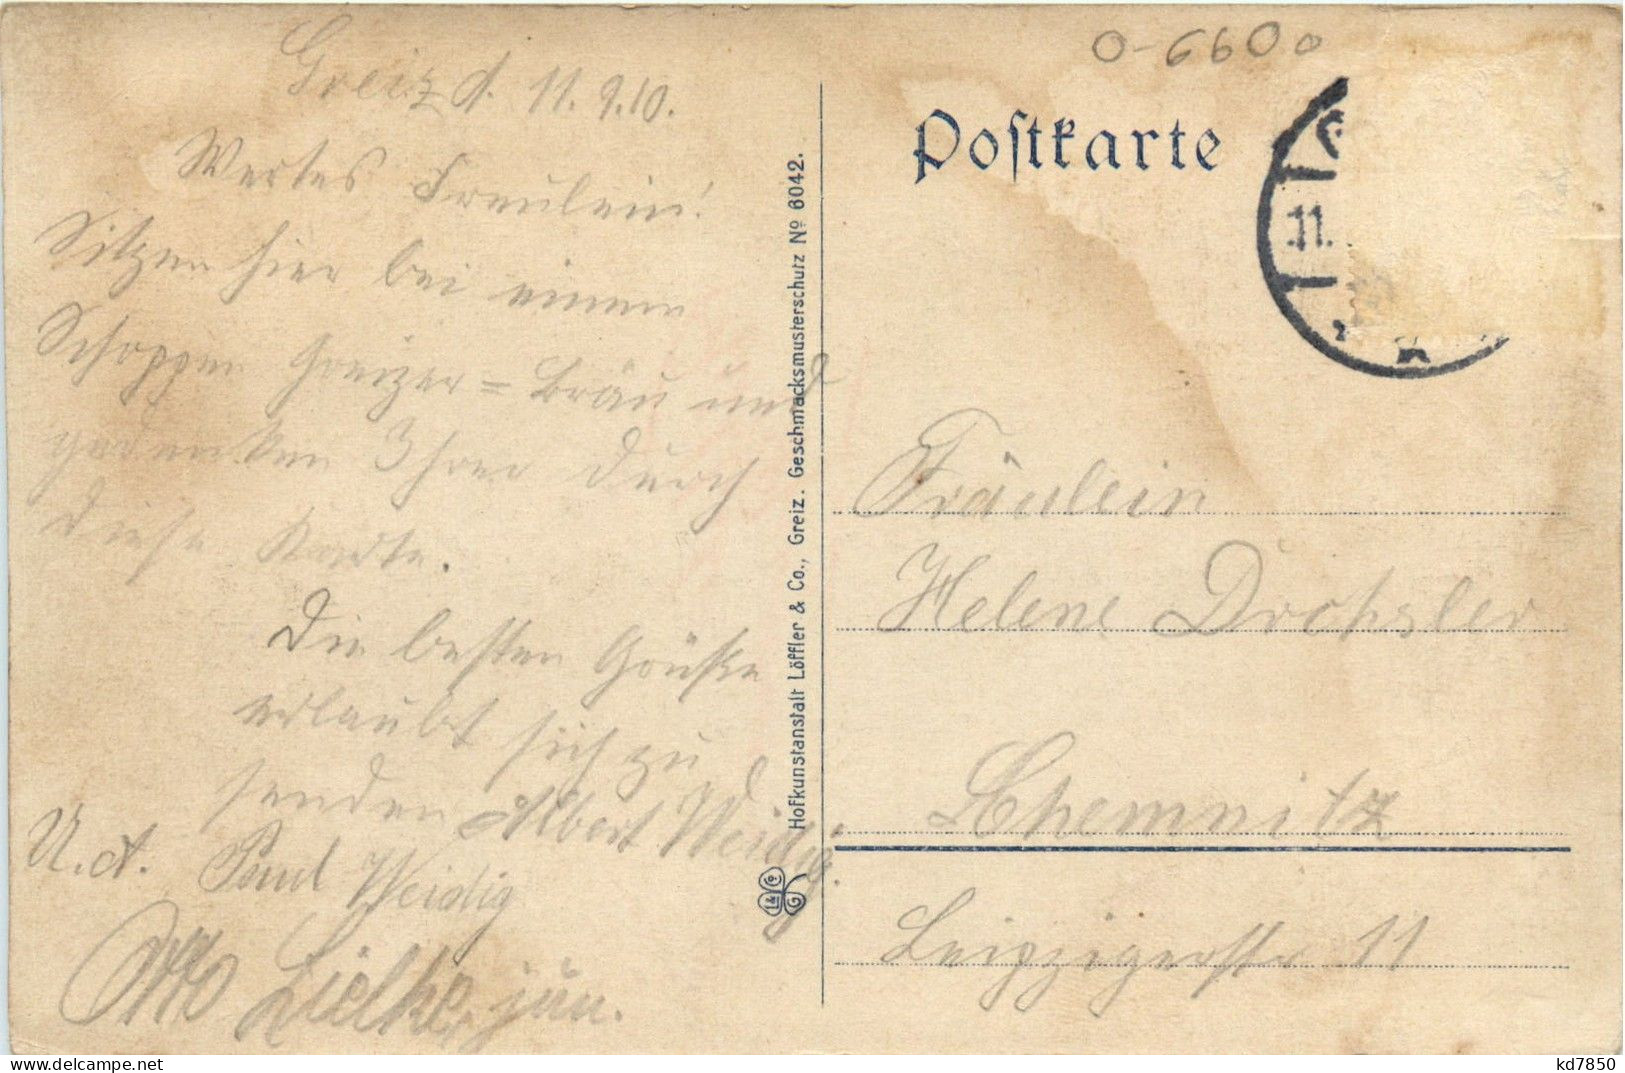 Greiz d. 11.9.10.
Wertes Freulein!
Sitzen hier bei einem
Schoppen Greizer=Bräu und
gedenken Ihrer durch
diese Karte.
Die besten Grüße
erlaubt sich zu
senden Albert Weidig.
U. A. Paul Weidig
Otto Lielke, jun.
Hofkunstanstalt Löffler & Co., Greiz. Geschmacksmusterschutz Nº 6042.
L & C
G
O-6600
Postkarte
11.
Fräulein
Helene Drechsler
Chemnitz
Leipzigerstr 11
kd7850